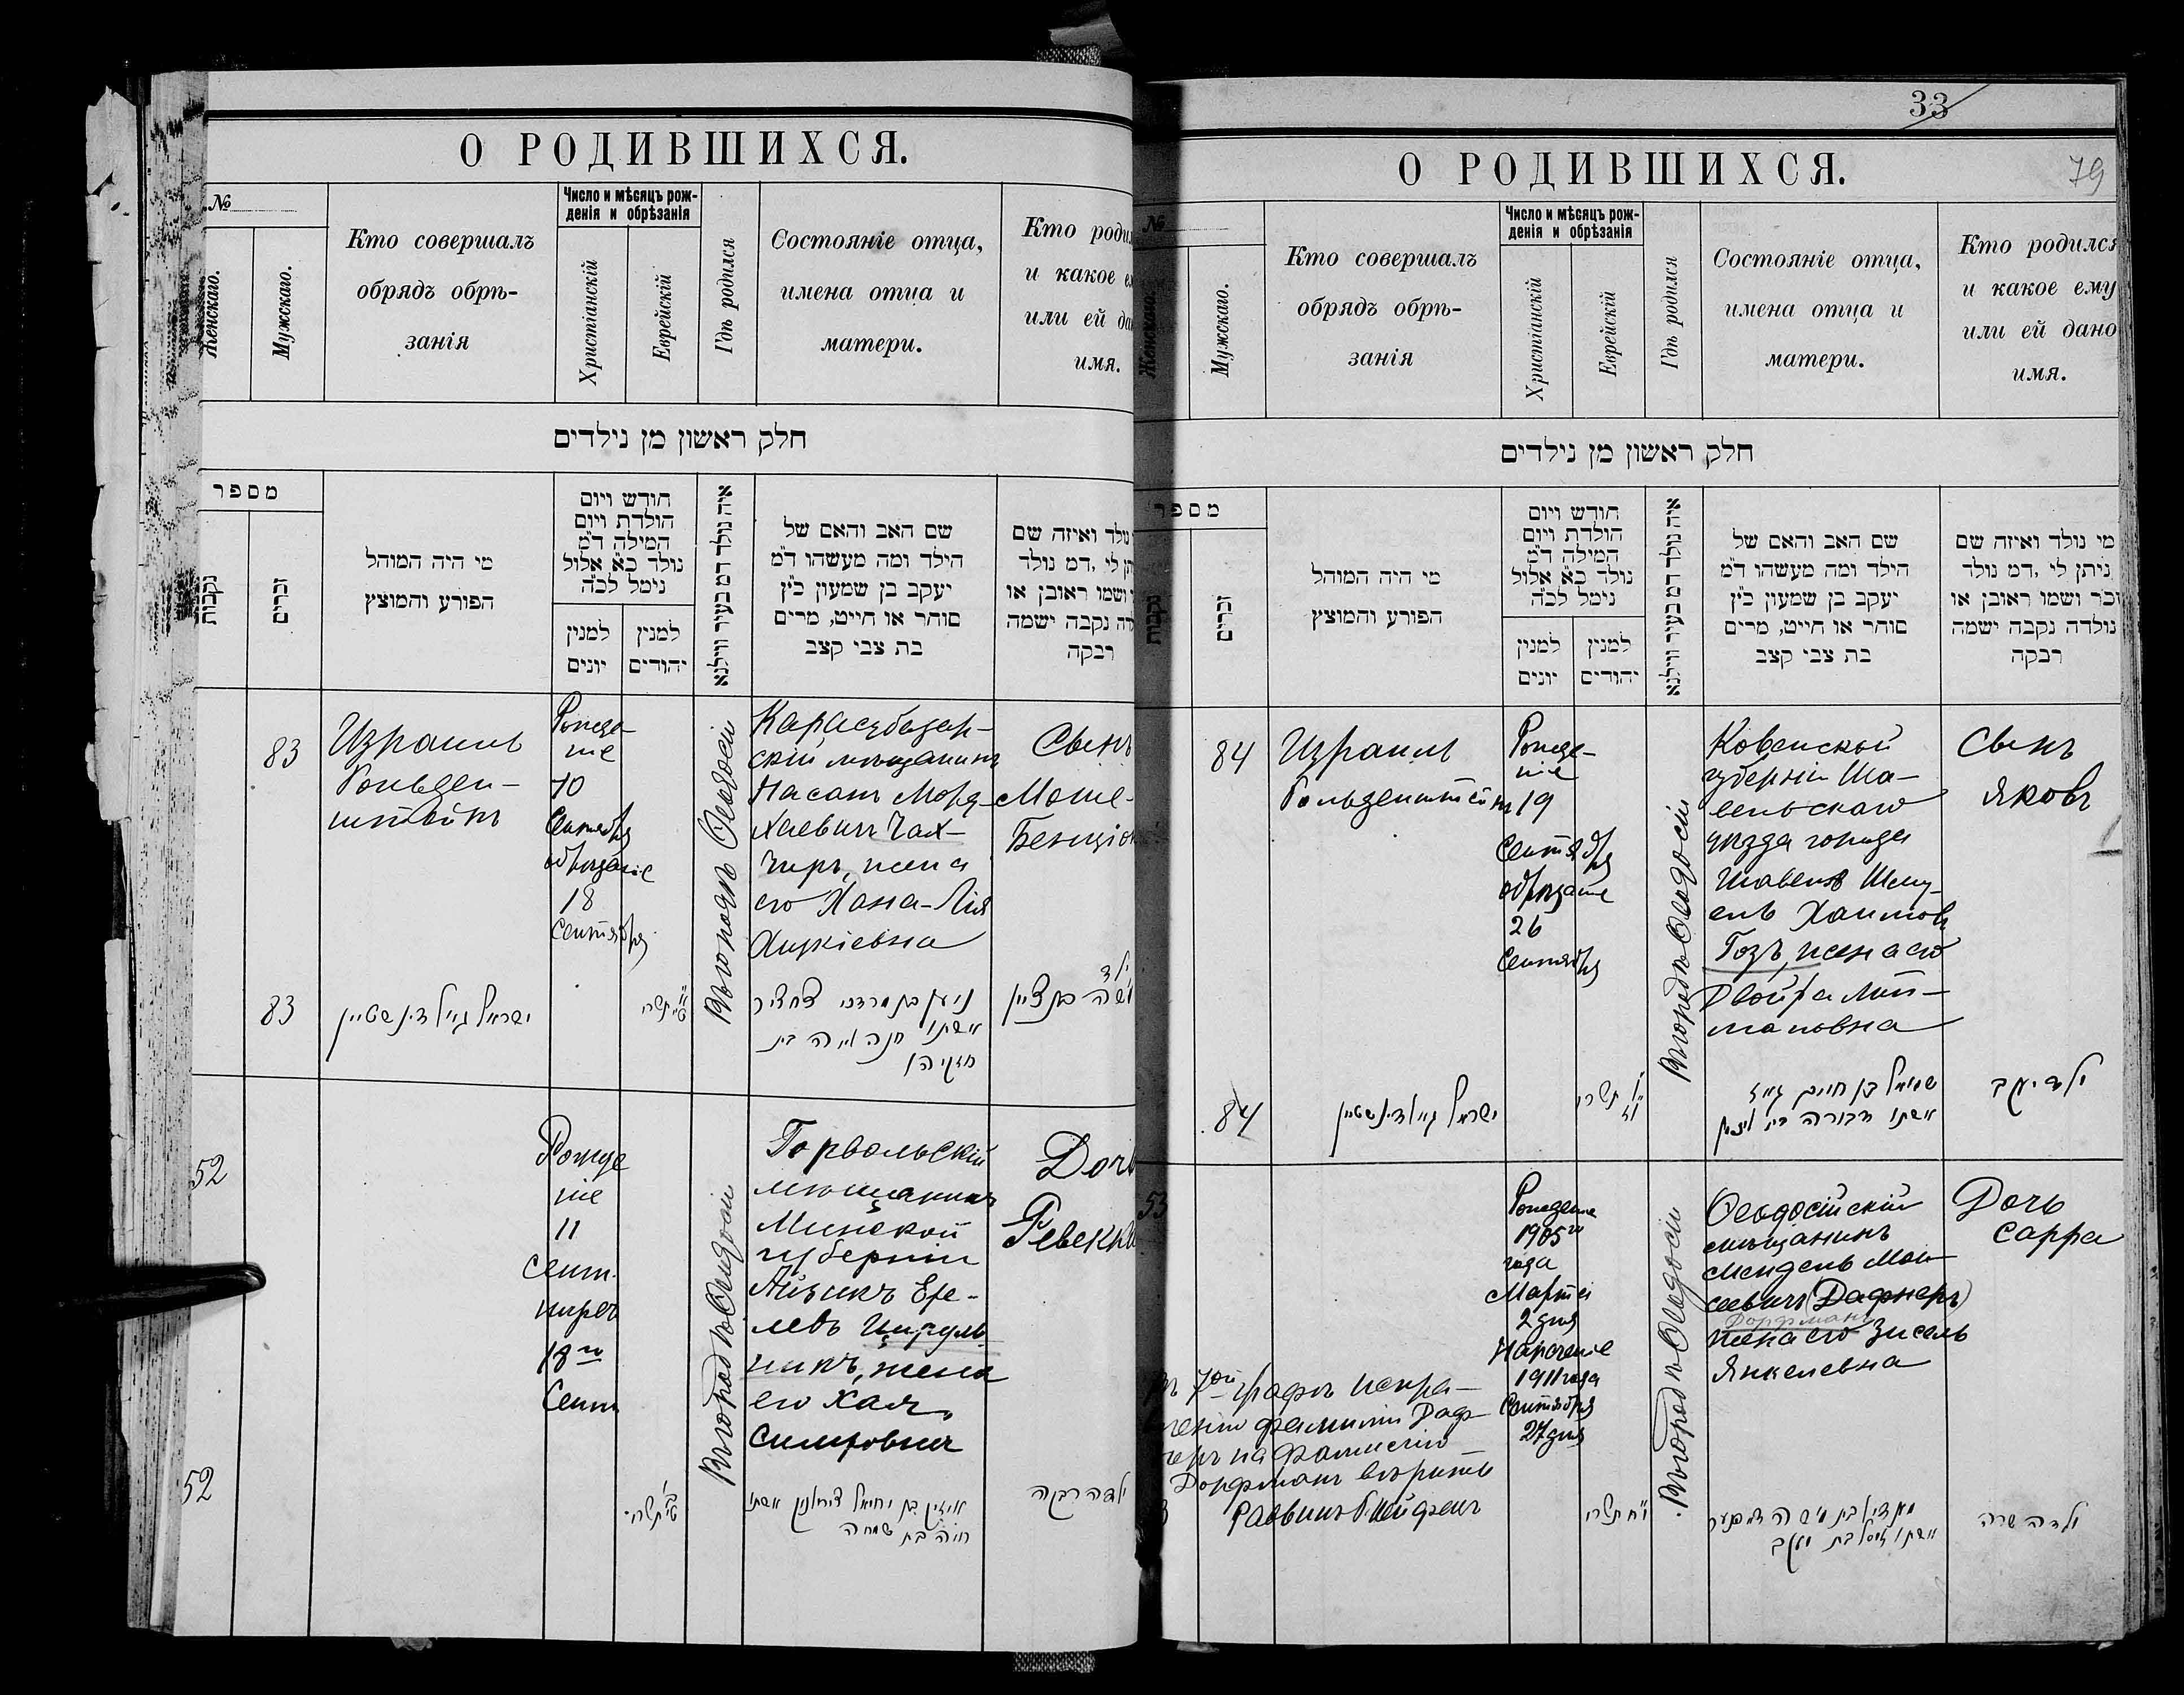 О РОДИВШИХСЯ.
№
Женскаго.
Мужскаго.
Кто совершалъ
обрядъ обрѣ-
занія
Число и мѣсяцъ рож-
денія и обрѣзанія
Христіанскій
Еврейскій
Гдѣ родился
Состояніе отца,
имена отца и
матери.
Кто роди
и какое е
или ей да
имя.
חלק ראשון מן נילדים
מספר
נקבות
זכרים
מי היה המוהל
הפורע והמוצץ
חודש ויום
הולדת ויום
המילה ד״מ
נולד כ״א אלול
נימל לכ״ה
למנין
יונים
למנין
יהודים
איה נולד דמ בעיר ווילנא
שם האב והאם של
הילד ומה מעשהו ד״מ
יעקב בן שמעון כ״ץ
סוחר או חייט, מרים
בת צבי קצב
נולד ואיזה שם
לי ,דמ נולד
ושמו ראובן או
נקבה ישמה
רבקה
83
Израиль
Гольден-
штейнъ
Рожде-
ніе
10
Сентября
обрѣзаніе
18
Сентября
Въ городѣ Ѳеодосіи
Карасубазар-
скій мѣщанинъ
Насанъ Морд-
хаевичъ Чах-
чиръ, жена
его Хана-Лія
Хизкіевна
Сынъ
Моше-
Бенціонъ
83
ישראל גאלדינשטיין
תשרי
אשתו חנה לאה בת
חזקיהו
ילד
משה בן ציין
52
Рожде
ніе
11
Сент.
нареч
18го
Сент
Въ городѣ Ѳеодосіи
Горвольскій
мѣщанинъ
Минской
губерніи
Айзикъ Ере-
левъ Цируль
никъ, жена
его Хая
Симховна
Дочь
Ревекка
52
תשרי
חיה בת שמחה
ילדה רבקה
33
79
О РОДИВШИХСЯ.
№
Женскаго.
Мужскаго.
Кто совершалъ
обрядъ обрѣ-
занія
Число и мѣсяцъ рож-
денія и обрѣзанія
Христіанскій
Еврейскій
Гдѣ родился
Состояніе отца,
имена отца и
матери.
Кто родился
и какое ему
или ей дано
имя.
חלק ראשון מן נילדים
מספר
נקבות
זכרים
מי היה המוהל
הפורע והמוצץ
חודש ויום
הולדת ויום
המילה ד״מ
נולד כ״א אלול
נימל לכ״ה
למנין
יונים
למנין
יהודים
איה נולד דמ בעיר ווילנא
שם האב והאם של
הילד ומה מעשהו ד״מ
יעקב בן שמעון כ״ץ
סוחר או חייט, מרים
בת צבי קצב
מי נולד ואיזה שם
ניתן לי ,דמ נולד
זכר ושמו ראובן או
נולדה נקבה ישמה
רבקה
84
Израиль
Гольденштейнъ
Рожде-
ніе
19
Сентября
обрѣзаніе
26
Сентября
Въ городѣ Ѳеодосіи
Ковенской
губерніи Ша-
вельскаго
уѣзда города
Шавель Шму-
ель Хаимовъ
Гозъ, жена его
Двойра Лип-
мановна
Сынъ
Яковъ
84
ישראל גאלדינשטיין
תשרי
שמואל בן חיים גאז
אשתו דבורה בת
ילד יעקב
53
Рожденіе
1905го
года
Марта
2 дня
Нареченіе
1911 года
Сентября
27 дня
Въ городѣ Ѳеодосіи
Ѳеодосійскій
мѣщанинъ
Мендель Мои-
сеевичъ (Дафнеръ)
Дорфманъ
жена его Зисель
Янкелевна
Дочь
Сарра
7ой графѣ испра-
фамиліи Даф-
неръ на фамилію
Дорфманъ вѣрить
Раввинъ
תשרי
אשתו זיסל בת יעקב
ילדה שרה